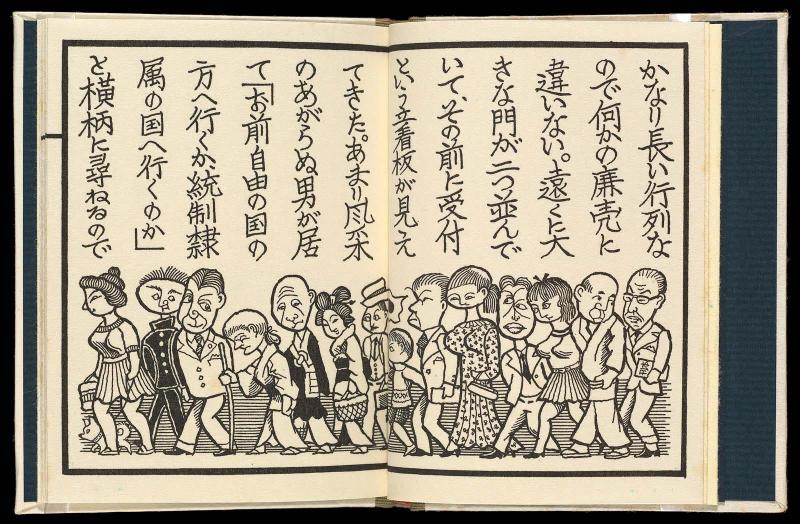 かなり長い行列な
ので何かの廉売に
違いない。遠くに大
きな門が二つ並んで
いて、その前に受付
という立看板が見え
てきた。あまり風采
のあがらぬ男が居
て「お前自由の国の
方へ行くか、統制隷
属の国へ行くのか」
と横柄に尋ねるので